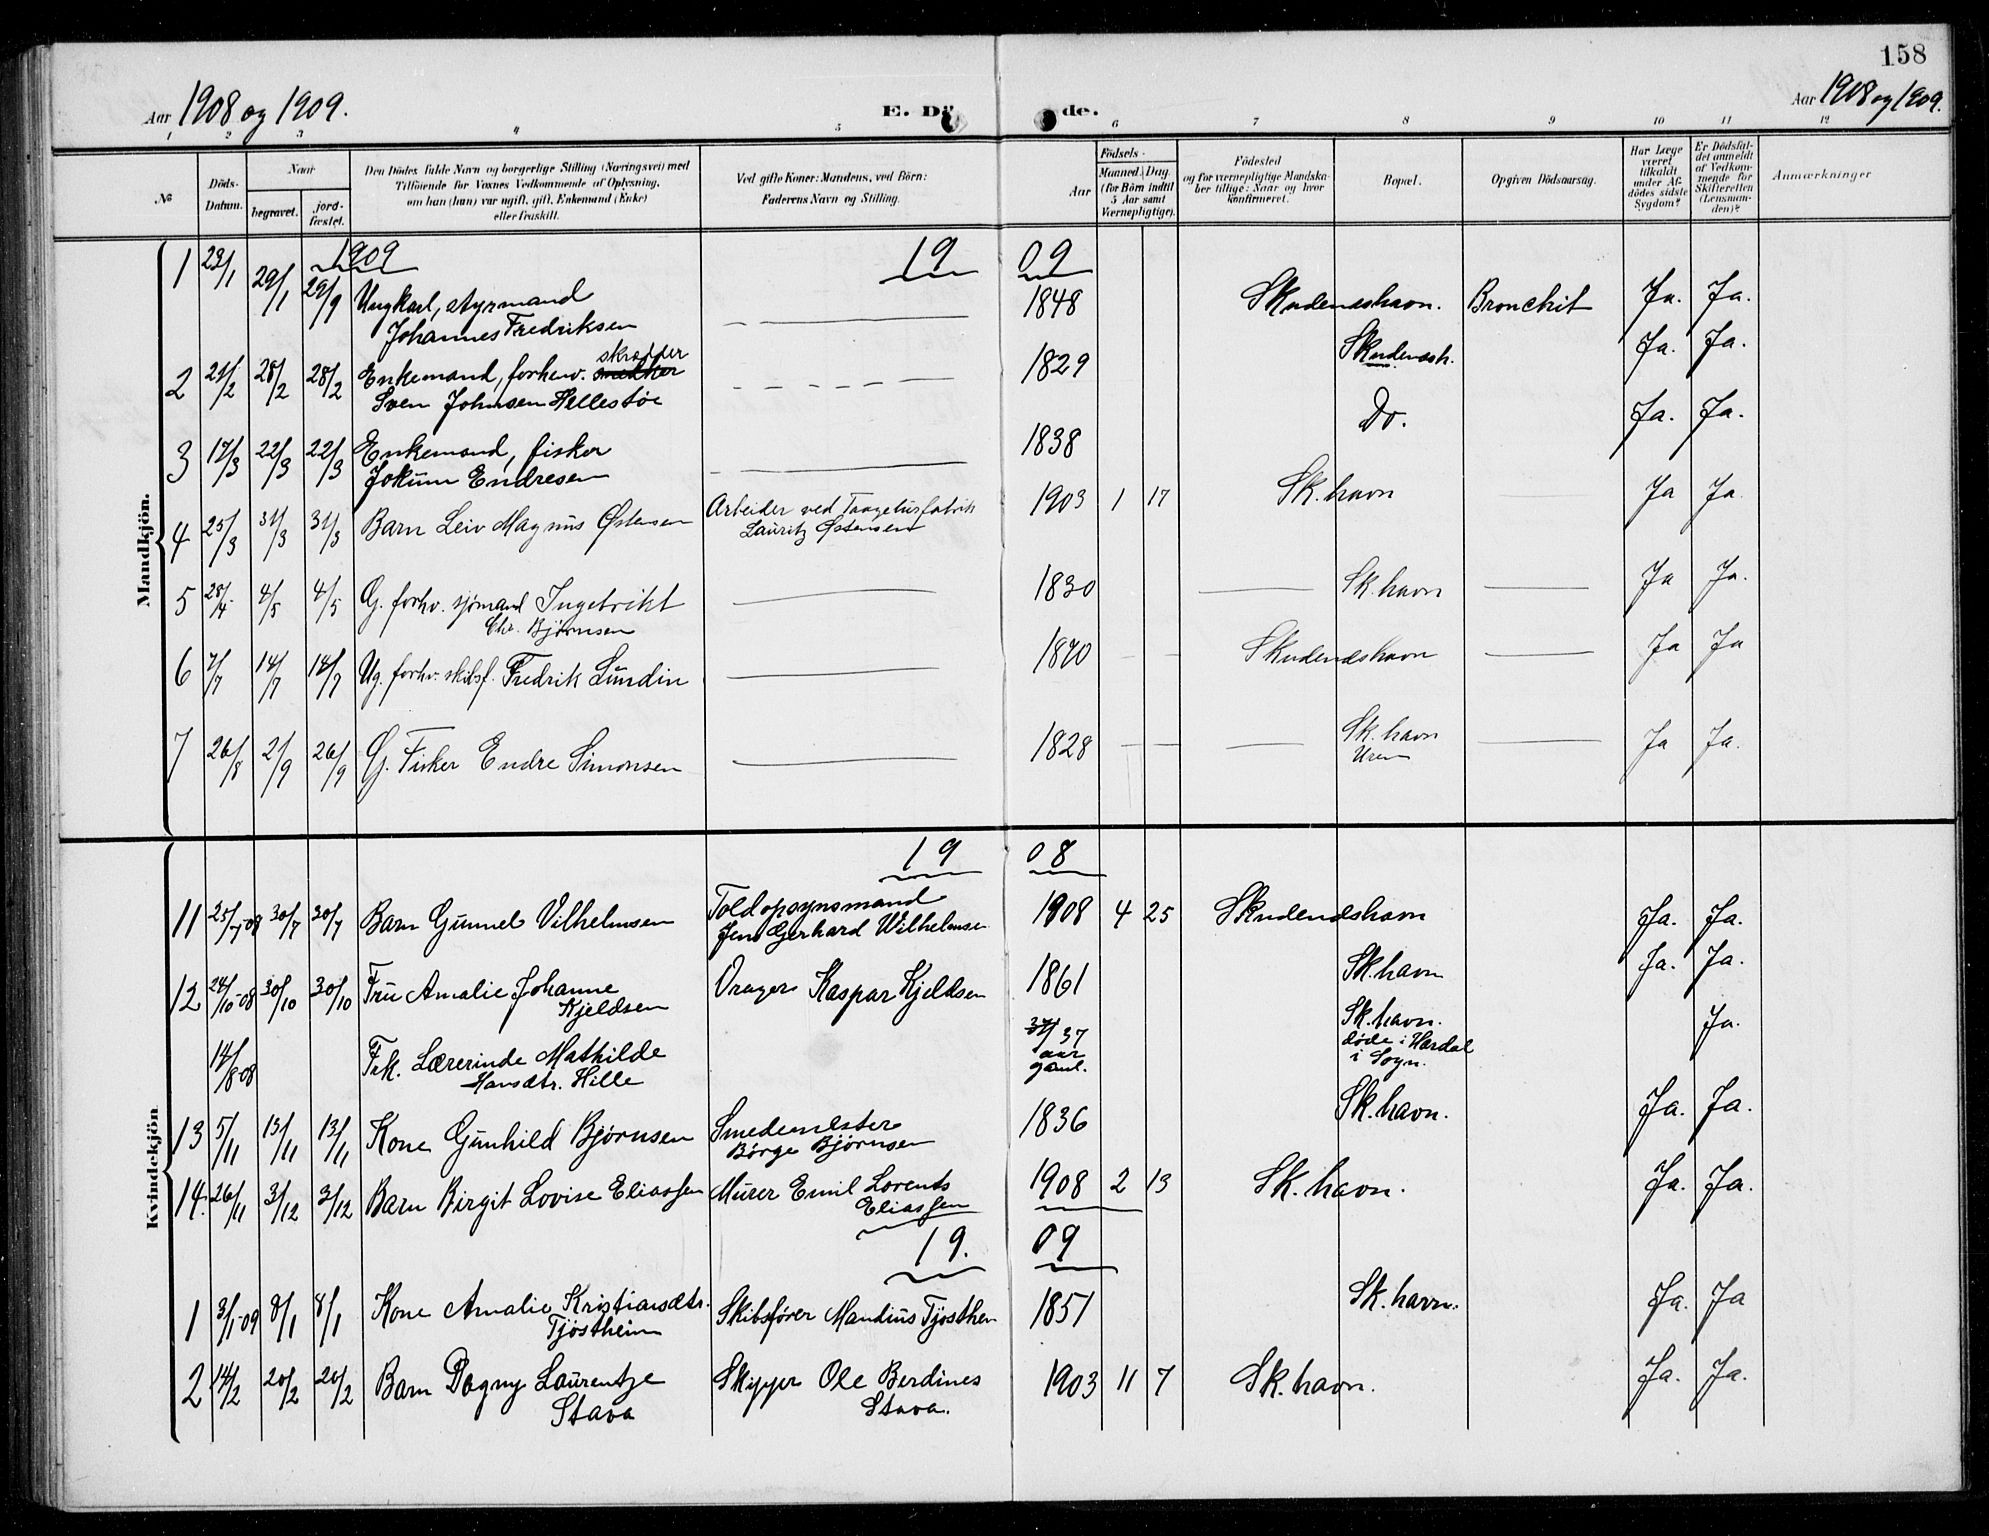 158
Aar 1908 og 1909.
E. Dö de.
Aar 1908 og 1909.
1 2 3 4 5 6 7 8 9 10 11 12
№
Döds-
Datum.
Naar
begravet.
jord-
fæstet.
Den Dödes fulde Navn og borgerlige Stilling (Næringsvei) med
Tilföiende for Voxnes Vedkommende af Oplysning,
om han (hun) var ugift, gift, Enkemand (Enke)
eller fraskilt.
Ved gifte Koner: Mandens, ved Börn:
Faderens Navn og Stilling.
Födsels-
Aar
Maaned. Dag.
(for Börn indtil
5 Aar samt
Værnepligtige).
Födested
og for værnepligtige Mandska-
ber tillige: Naar og hvor
konfirmeret.
Bopæl.
Opgiven Dödsaarsag.
Har Læge
været
tilkaldt
under Af-
dödes sidste
Sygdom?
Er Dödsfal-
det anmeldt
af Vedkom-
mende for
Skifteretten
(Lensman-
den)?
Anmærkninger
Mandkjön.
1909
19 09
1 23/1 29/1 29/9 Ungkarl, styrmand
Johannes Fredriksen
1848 Skudeneshavn. Bronchit Ja. Ja.
2 21/2 28/2 28/2 Enkemand, forhenv. skrædder
Sven Johnsen Hellestøe
1829 Skudenesh. Ja. Ja.
3 17/3 22/3 22/3 Enkemand, fisker
Jokum Endresen
1838 Do. Ja. Ja.
4 25/3 31/3 31/3 Barn Leiv Magnus Østensen Arbeider ved
Lauritz Østensen
1903 1 17 Sk.havn Ja Ja
5 28/4 4/5 4/5 G. forhv. sjømand Ingebrikt
Chr. Bjørnsen
1830 Sk.havn Ja Ja.
6 7/7 14/7 14/7 Ug. forhv. skibsf. Fredrik Lundin 1840 Skudeneshavn Ja Ja
7 26/8 2/9 26/9 G. Fisker Endre Simonsen 1828 Sk.havn Ja Ja.
Kvindekjön
19 08
11 25/7-08 30/7 30/7 Barn Gunnel Vilhelmsen Toldopsynsmand
Jens Gerhard Wilhelmse
1908 4 25 Skudeneshavn Ja. Ja.
12 24/10-08 30/10 30/10 Fru Amalie Johanne
Kjeldsen
Vrager Kaspar Kjeldsen 1861 Sk.havn Ja. Ja.
14/8 08 Frk. Lærerinde Mathilde
Hansdtr. Hille
37
aar
gaml.
Sk.havn.
døde i Hærdal
i Sogn.
Ja.
13 5/11 13/11 13/11 Kone Gunhild Bjørnsen Smedemester
Børge Bjørnsen
1836 Sk.havn. Ja. Ja.
14. 26/11 3/12 3/12 Barn Birgit Lovise Eliassen Murer Emil Lorents
Eliassen
1908 2 13 Sk.havn. Ja. Ja.
19. 09
1 3/1-09 8/1 8/1 Kone Amalie Kristiansdtr.
Tjøstheim
Skibsfører Mandius Tjøsthei 1851 Sk.havn. Ja. Ja
2 14/2 20/2 20/2 Barn Dagny Laurentze
Stava
Skipper Ole Berdines
Stava.
1903 11 7 Sk.havn. Ja. Ja.